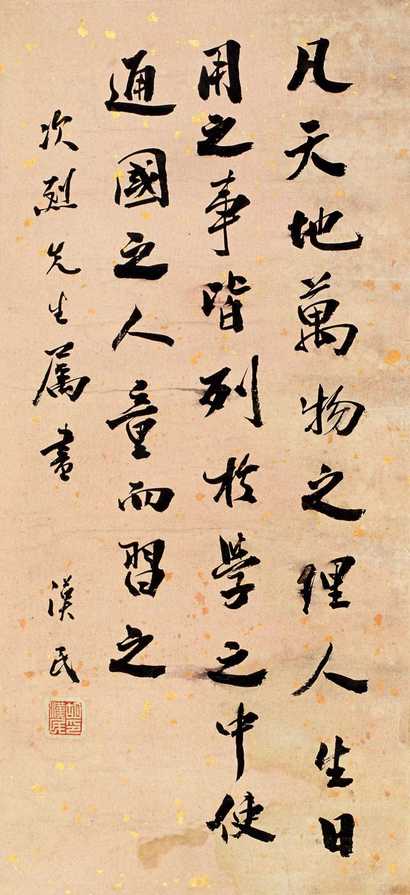 凡天地萬物之理人生日
用之事皆列於學之中使
通國之人童而習之
次烈先生属書
漢民